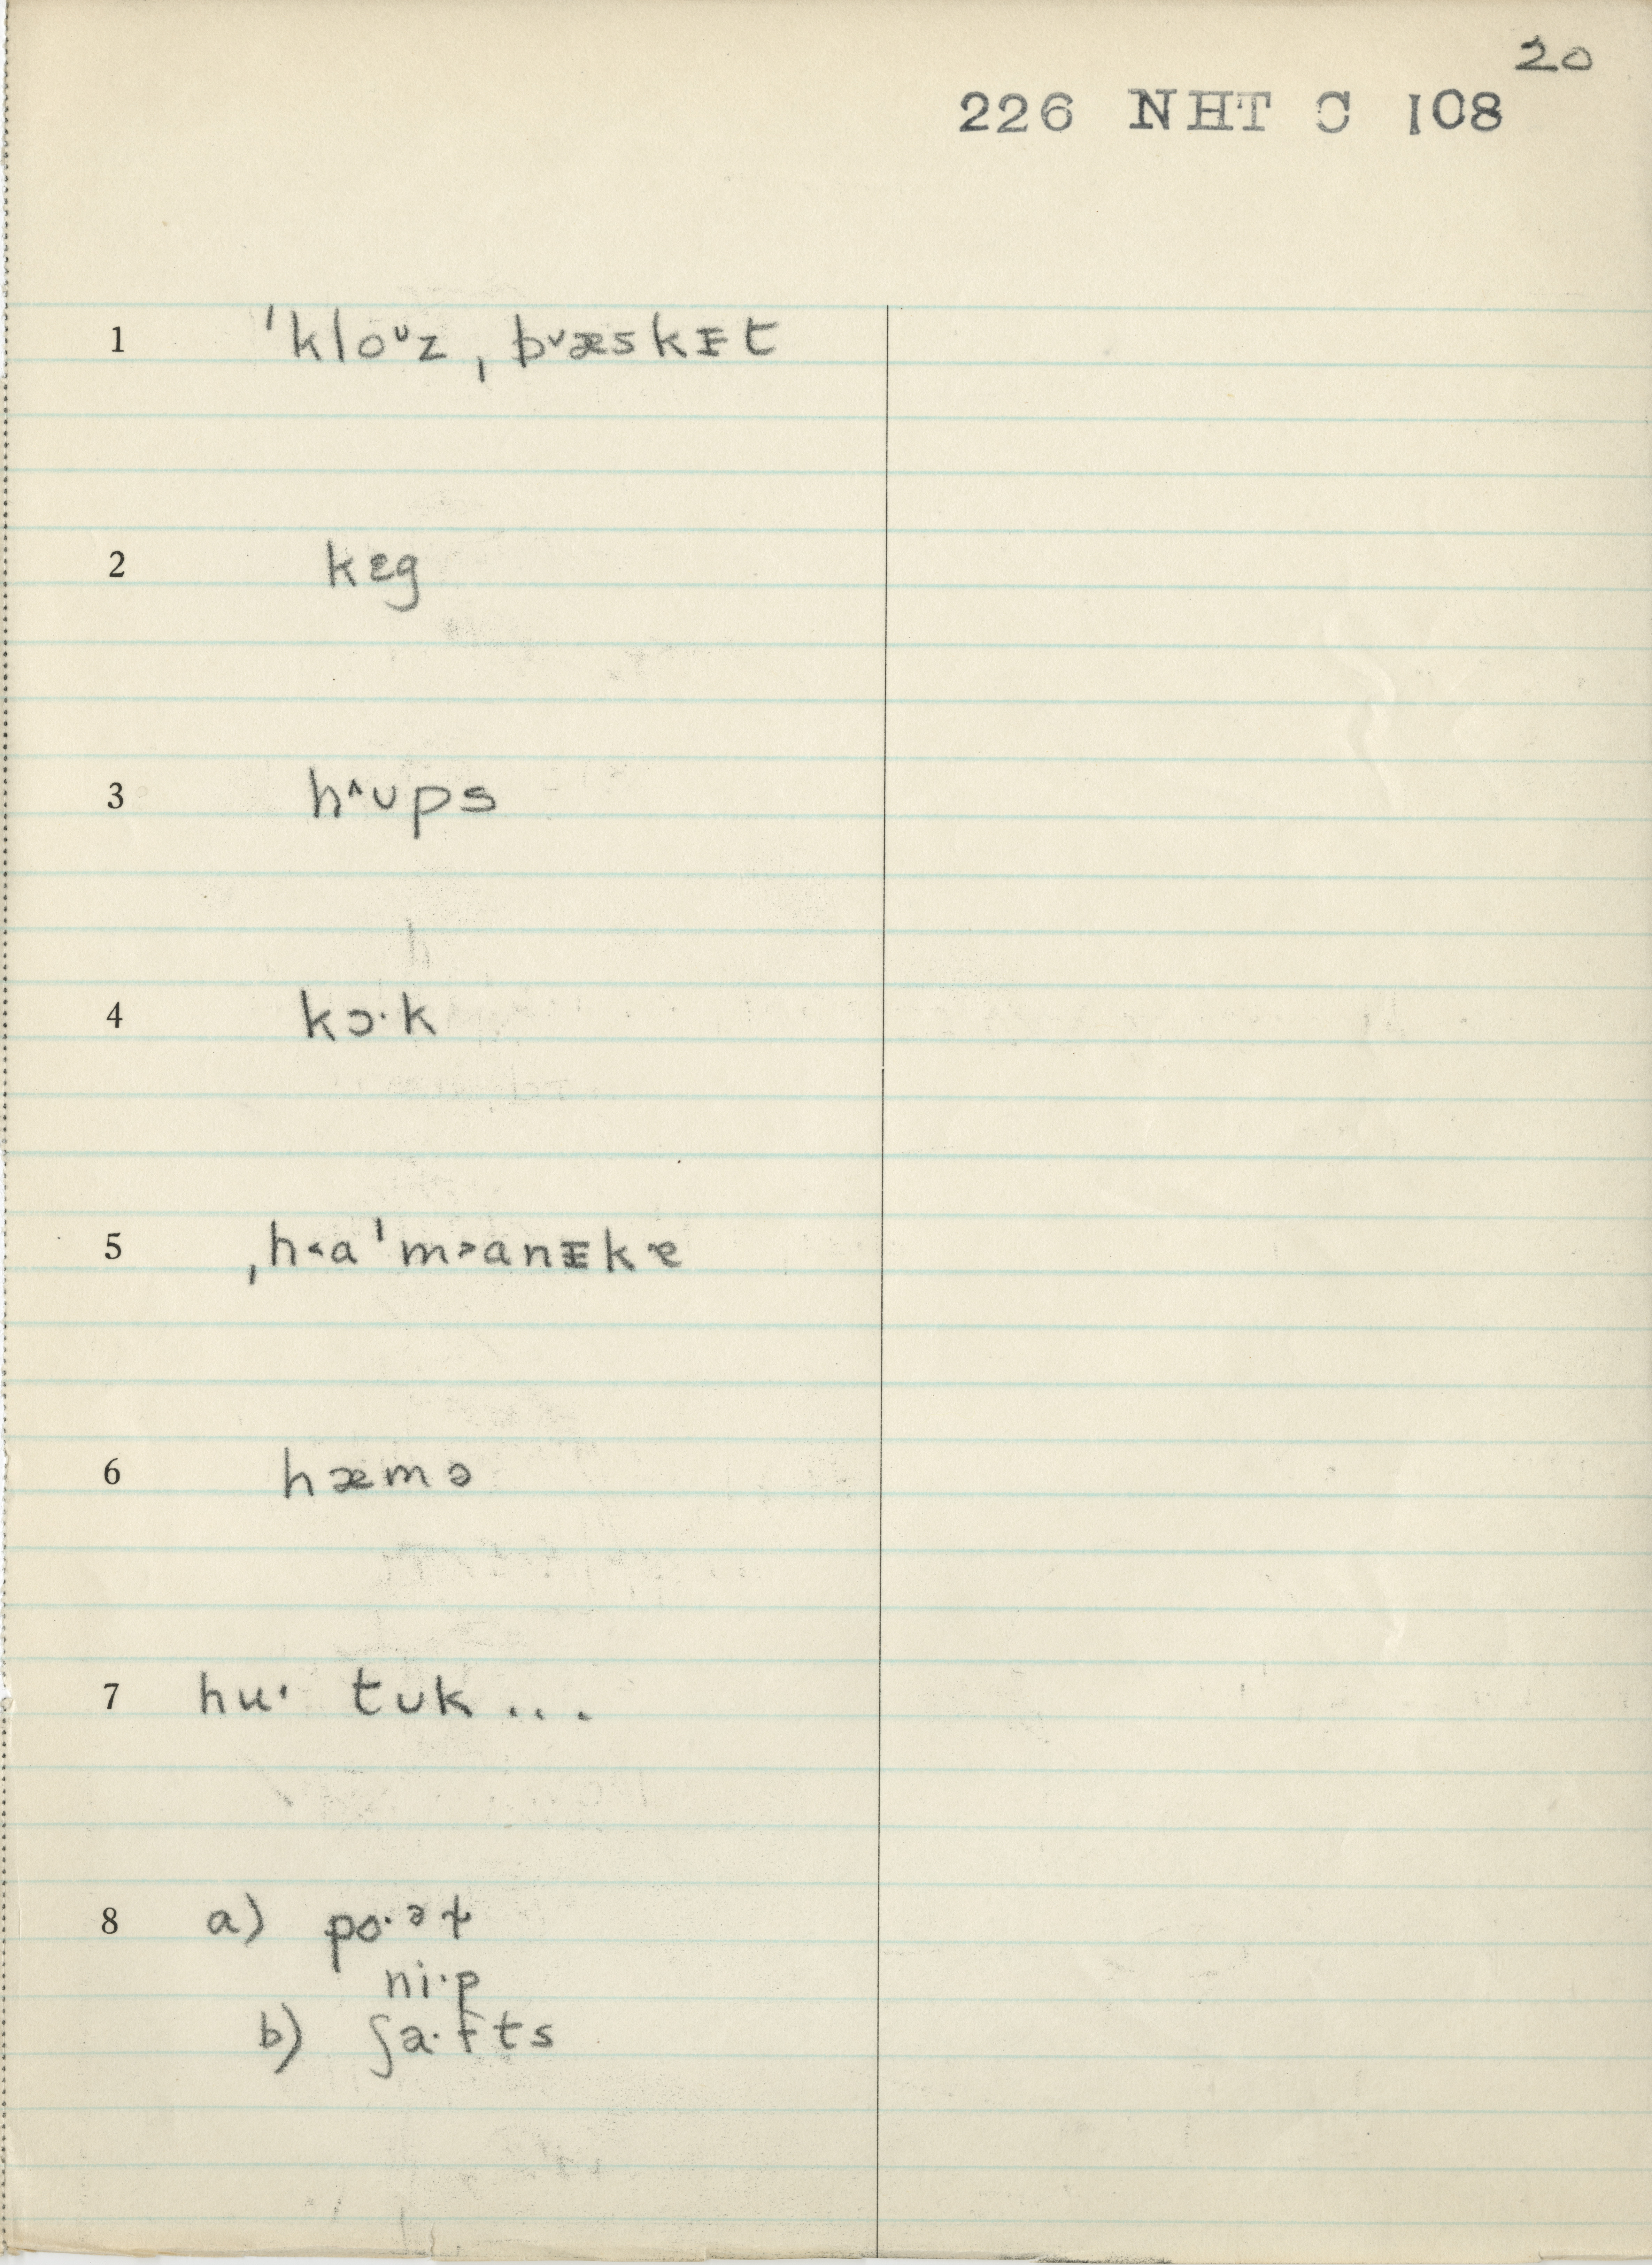 20
226 NHT C 108
1 ˈkloᶷz ˌb̥˅æskᵻt
2 kɛg
3 h^ʊps
4 kɔ·k
5 ˌh˂aˈm˃anᵻkɐ
6 hæmə
7 hu· tʊk ...
8 a) po·ᵊɫ
ni·p
b) ʃa·fts